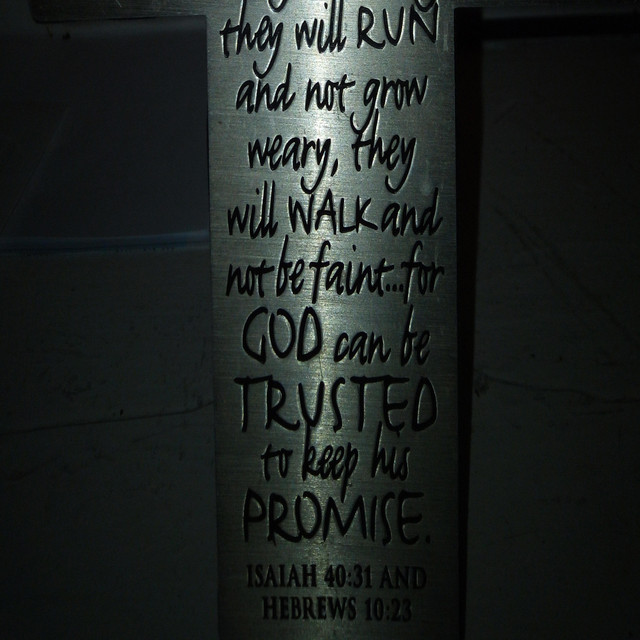 they will RUN
and not grow
weary, they
will WALK and
not be faint...for
GOD can be
TRUSTED
to keep his
PROMISE.
ISAIAH 40:31 AND
HEBREWS 10:23